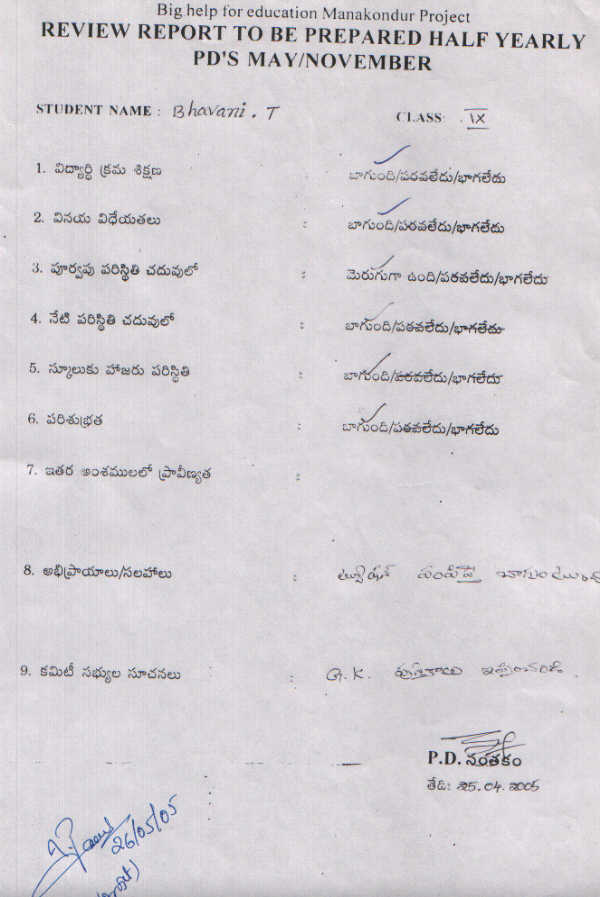 Big help for education Manakondur Project
REVIEW REPORT TO BE PREPARED HALF YEARLY
PD'S MAY/NOVEMBER
STUDENT NAME : Bhavani . T CLASS: IX
1. విద్యార్థి క్రమ శిక్షణ బాగుంది/పరవలేదు/భాగలేదు
2. వినయ విధేయతలు : బాగుంది/పరవలేదు/భాగలేదు
3. పూర్వపు పరిస్థితి చదువులో : మెరుగుగా ఉంది/పరవలేదు/భాగలేదు
4. నేటి పరిస్థితి చదువులో : బాగుంది/పరవలేదు/భాగలేదు
5. స్కూలుకు హాజరు పరిస్థితి : బాగుంది/పరవలేదు/భాగలేదు
6. పరిశుభ్రత : బాగుంది/పరవలేదు/భాగలేదు
7. ఇతర అంశములలో ప్రావీణ్యత :
8. అభిప్రాయాలు/సలహాలు : ట్యూషన్ పంపిస్తే బాగుంటుంది
9. కమిటీ సభ్యుల సూచనలు : G.K. పుస్తకాలు ఇప్పించండి.
P.D. సంతకం
తేది: 25.04.2005
26/05/05